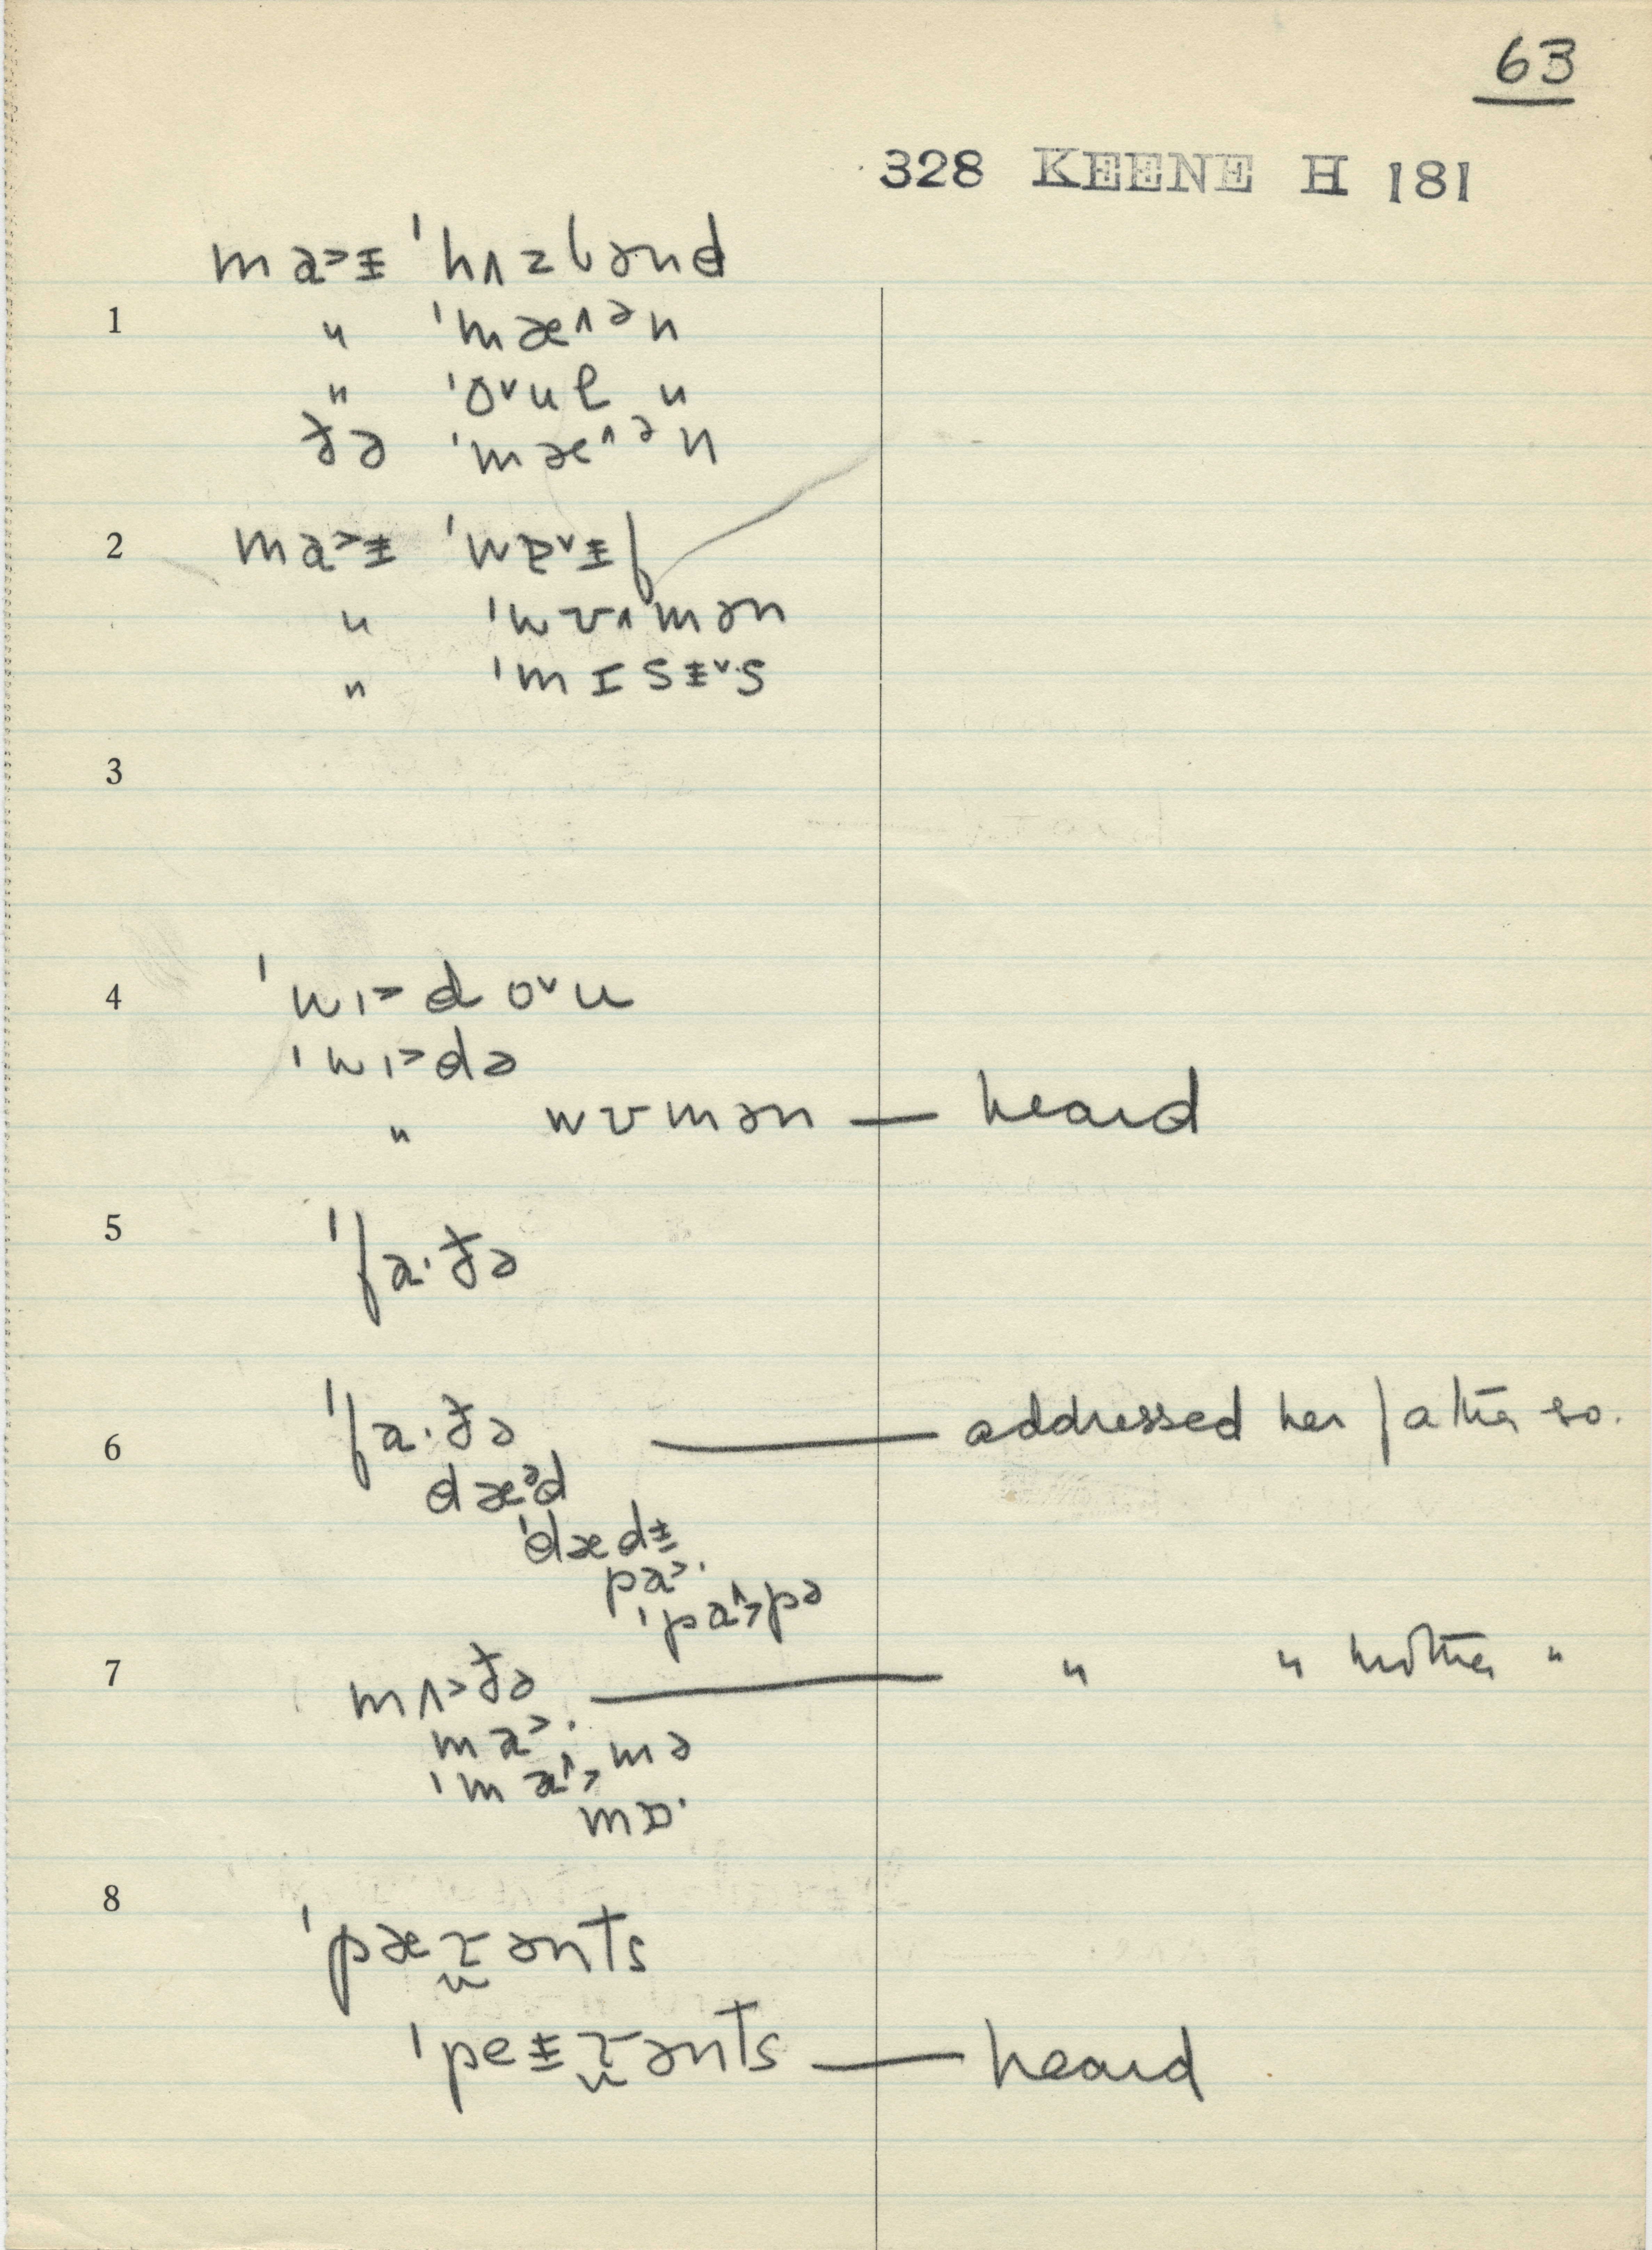 63
328 KEENE H 181
ma˃ɨ ˈhʌzbənd
1 " ˈmæ˄ᵊn
" ˈo˅ul "
ðə ˈmæ˄ᵊn
2 ma˃ɨ ˈwɐ˅ɨf
" ˈwʊ˄mən
" ˈmɪsɨ˅s
3
4 ˈwɪ˃do˅u
ˈwɪ˃də
" wʊmən — heard
5 ˈfa·ðə
6 ˈfa·ðə — addressed her father so.
dæᵊd
ˈdædɨ
pa˃·
ˈpa˄˃pə
7 mʌ˃ðə — " " mother "
ma˃·
ˈma˄˃mə
mɒ·
8 ˈpæɽənts
ˈpeɨɽənts — heard